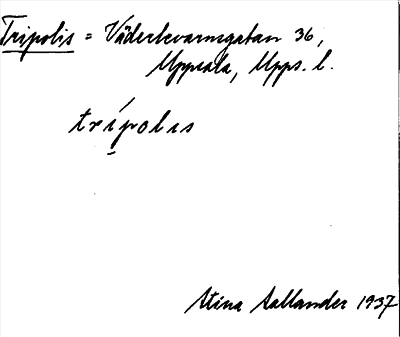 Tripolis = Väderkvarnsgatan 36,
Uppsala, Upps. l.
trípolis
Stina Sallander 1937